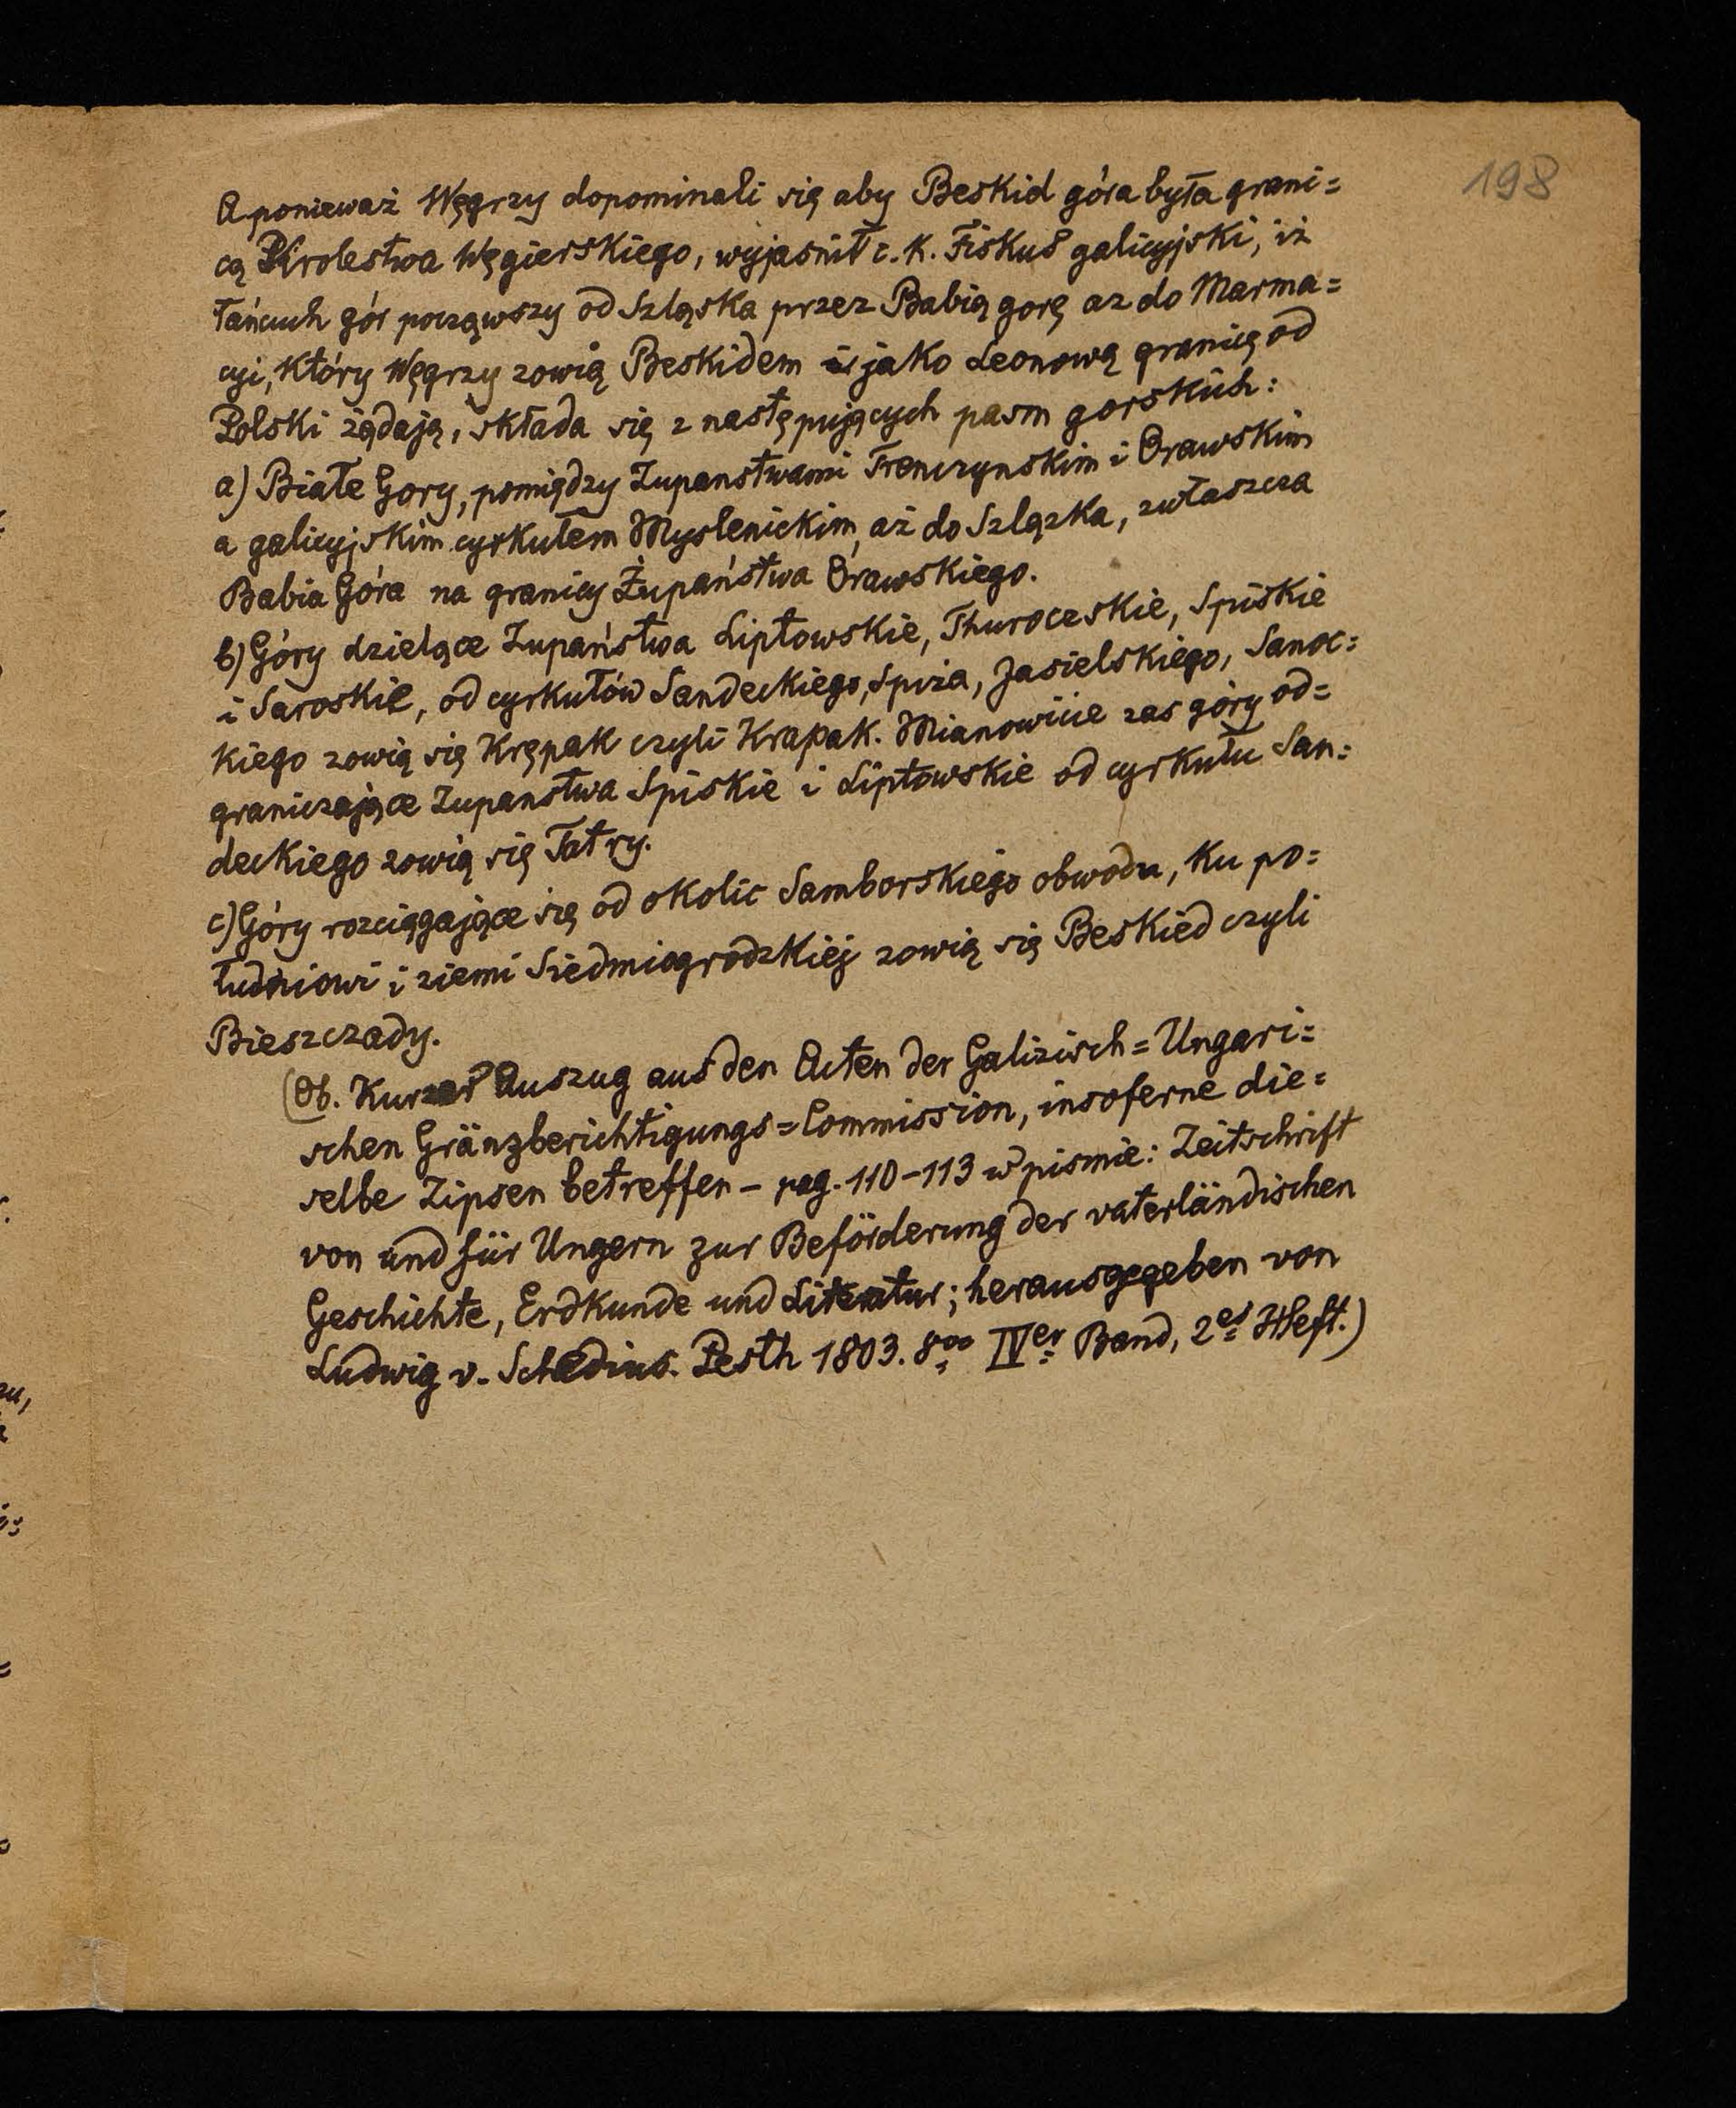 198
A ponieważ Węgrzy dopominali się aby Beskid góra była grani=
cą Krolestwa Węgierskiego, wyjasnił c. K. Fiskus galicyjski, iż
łańcuch gór począwszy od Szląska przez Babią gorę az do Marma=
cyi, który Węgrzy zowią Beskidem i jako Leonową granicę od
Polski żądają, składa się z następujących pasm gorskich:
a) Białe Gory, pomiędzy Zupanstwami Trenczynskim i Orawskim
a galicyjskim cyrkułem Myslenickim, aż do Szlązka, zwłaszcza
Babia Góra na granicy Żupaństwa Orawskiego.
b) Góry dzielące Zupaństwa Liptowskie, Thuroceskie, Spiskie
i Saroskie, od cyrkułów Sandeckiego, Spiża, Jasielskiego, Sanoc=
kiego zowią się Krępak czyli Krapak. Mianowicie zas góry od=
graniczające Zupanstwa Spiskie i Liptowskie od cyrkułu San=
deckiego zowią się Tatry.
c) Góry rozciągające się od okolic Samborskiego obwodu, ku po=
łudniowi i ziemi Siedmiogrodzkiej zowią się Beskied czyli
Bieszczady.
(Ob. Kurzer Auszug aus den Acten der Galizisch=Ungari=
schen Gränzberichtigungs=Commission, insoferne die=
selbe Zipsen betreffen – pag. 110–113 w pismie: Zeitschrift
von und für Ungern zur Beförderung der vaterländischen
Geschichte, Erdkunde und Literatur; herausgegeben von
Ludwig v. Schedius. Pesth 1803. 8vo IVer Band, 2es Heft.)